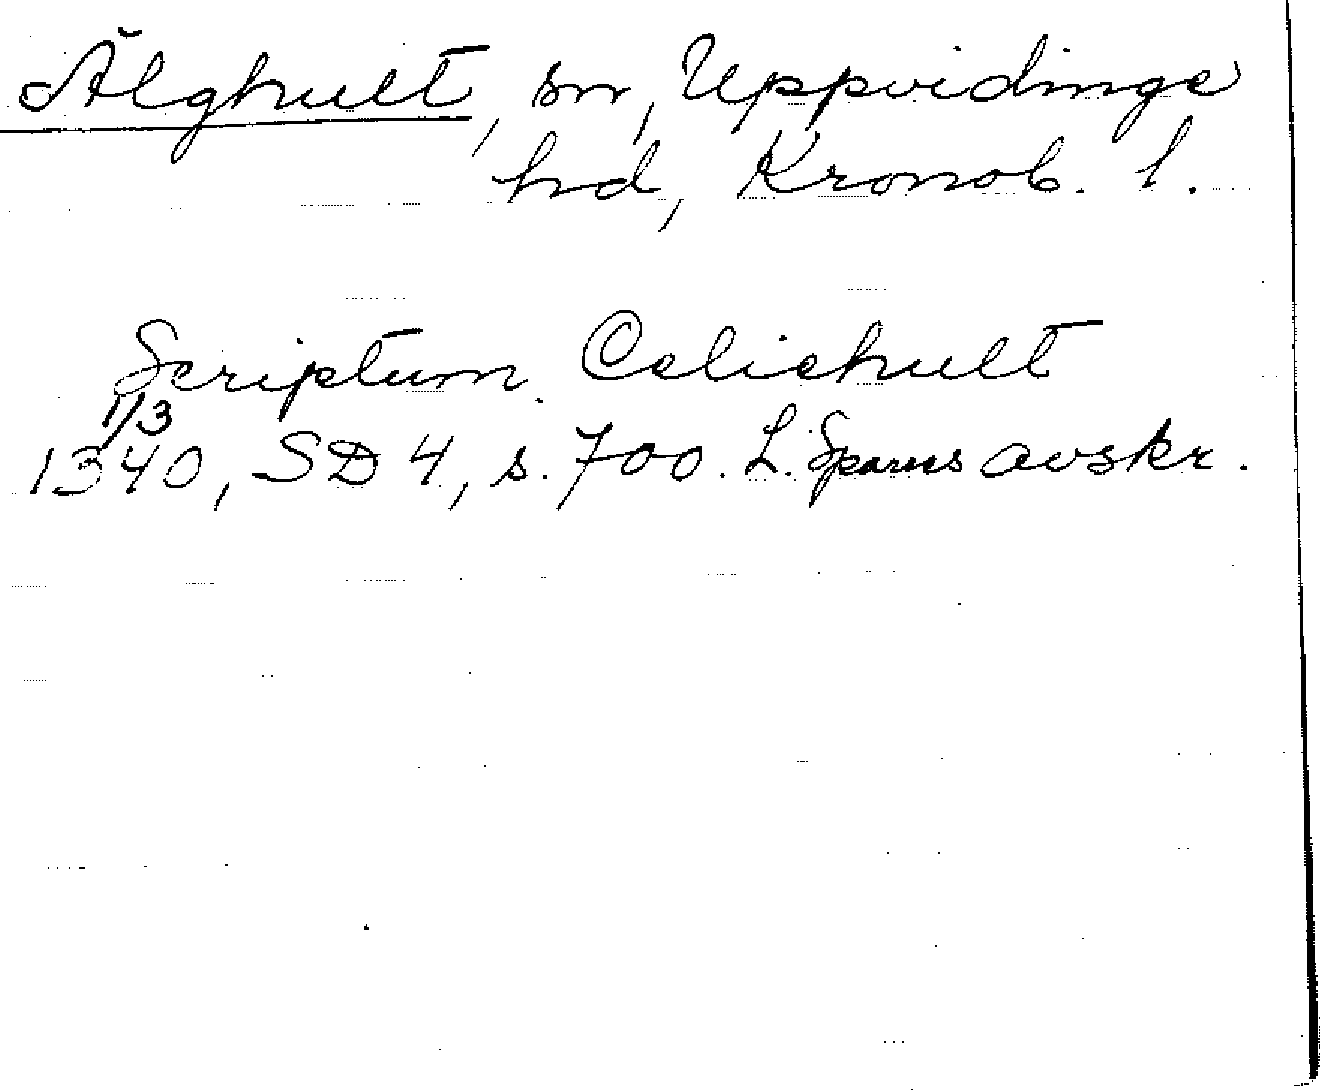 Älghult, sn, Uppvidinge
hd, Kronob. l.
Scriptum. Celiehult
1/3
1340, SD 4, s. 700. L. Sparres avskr.